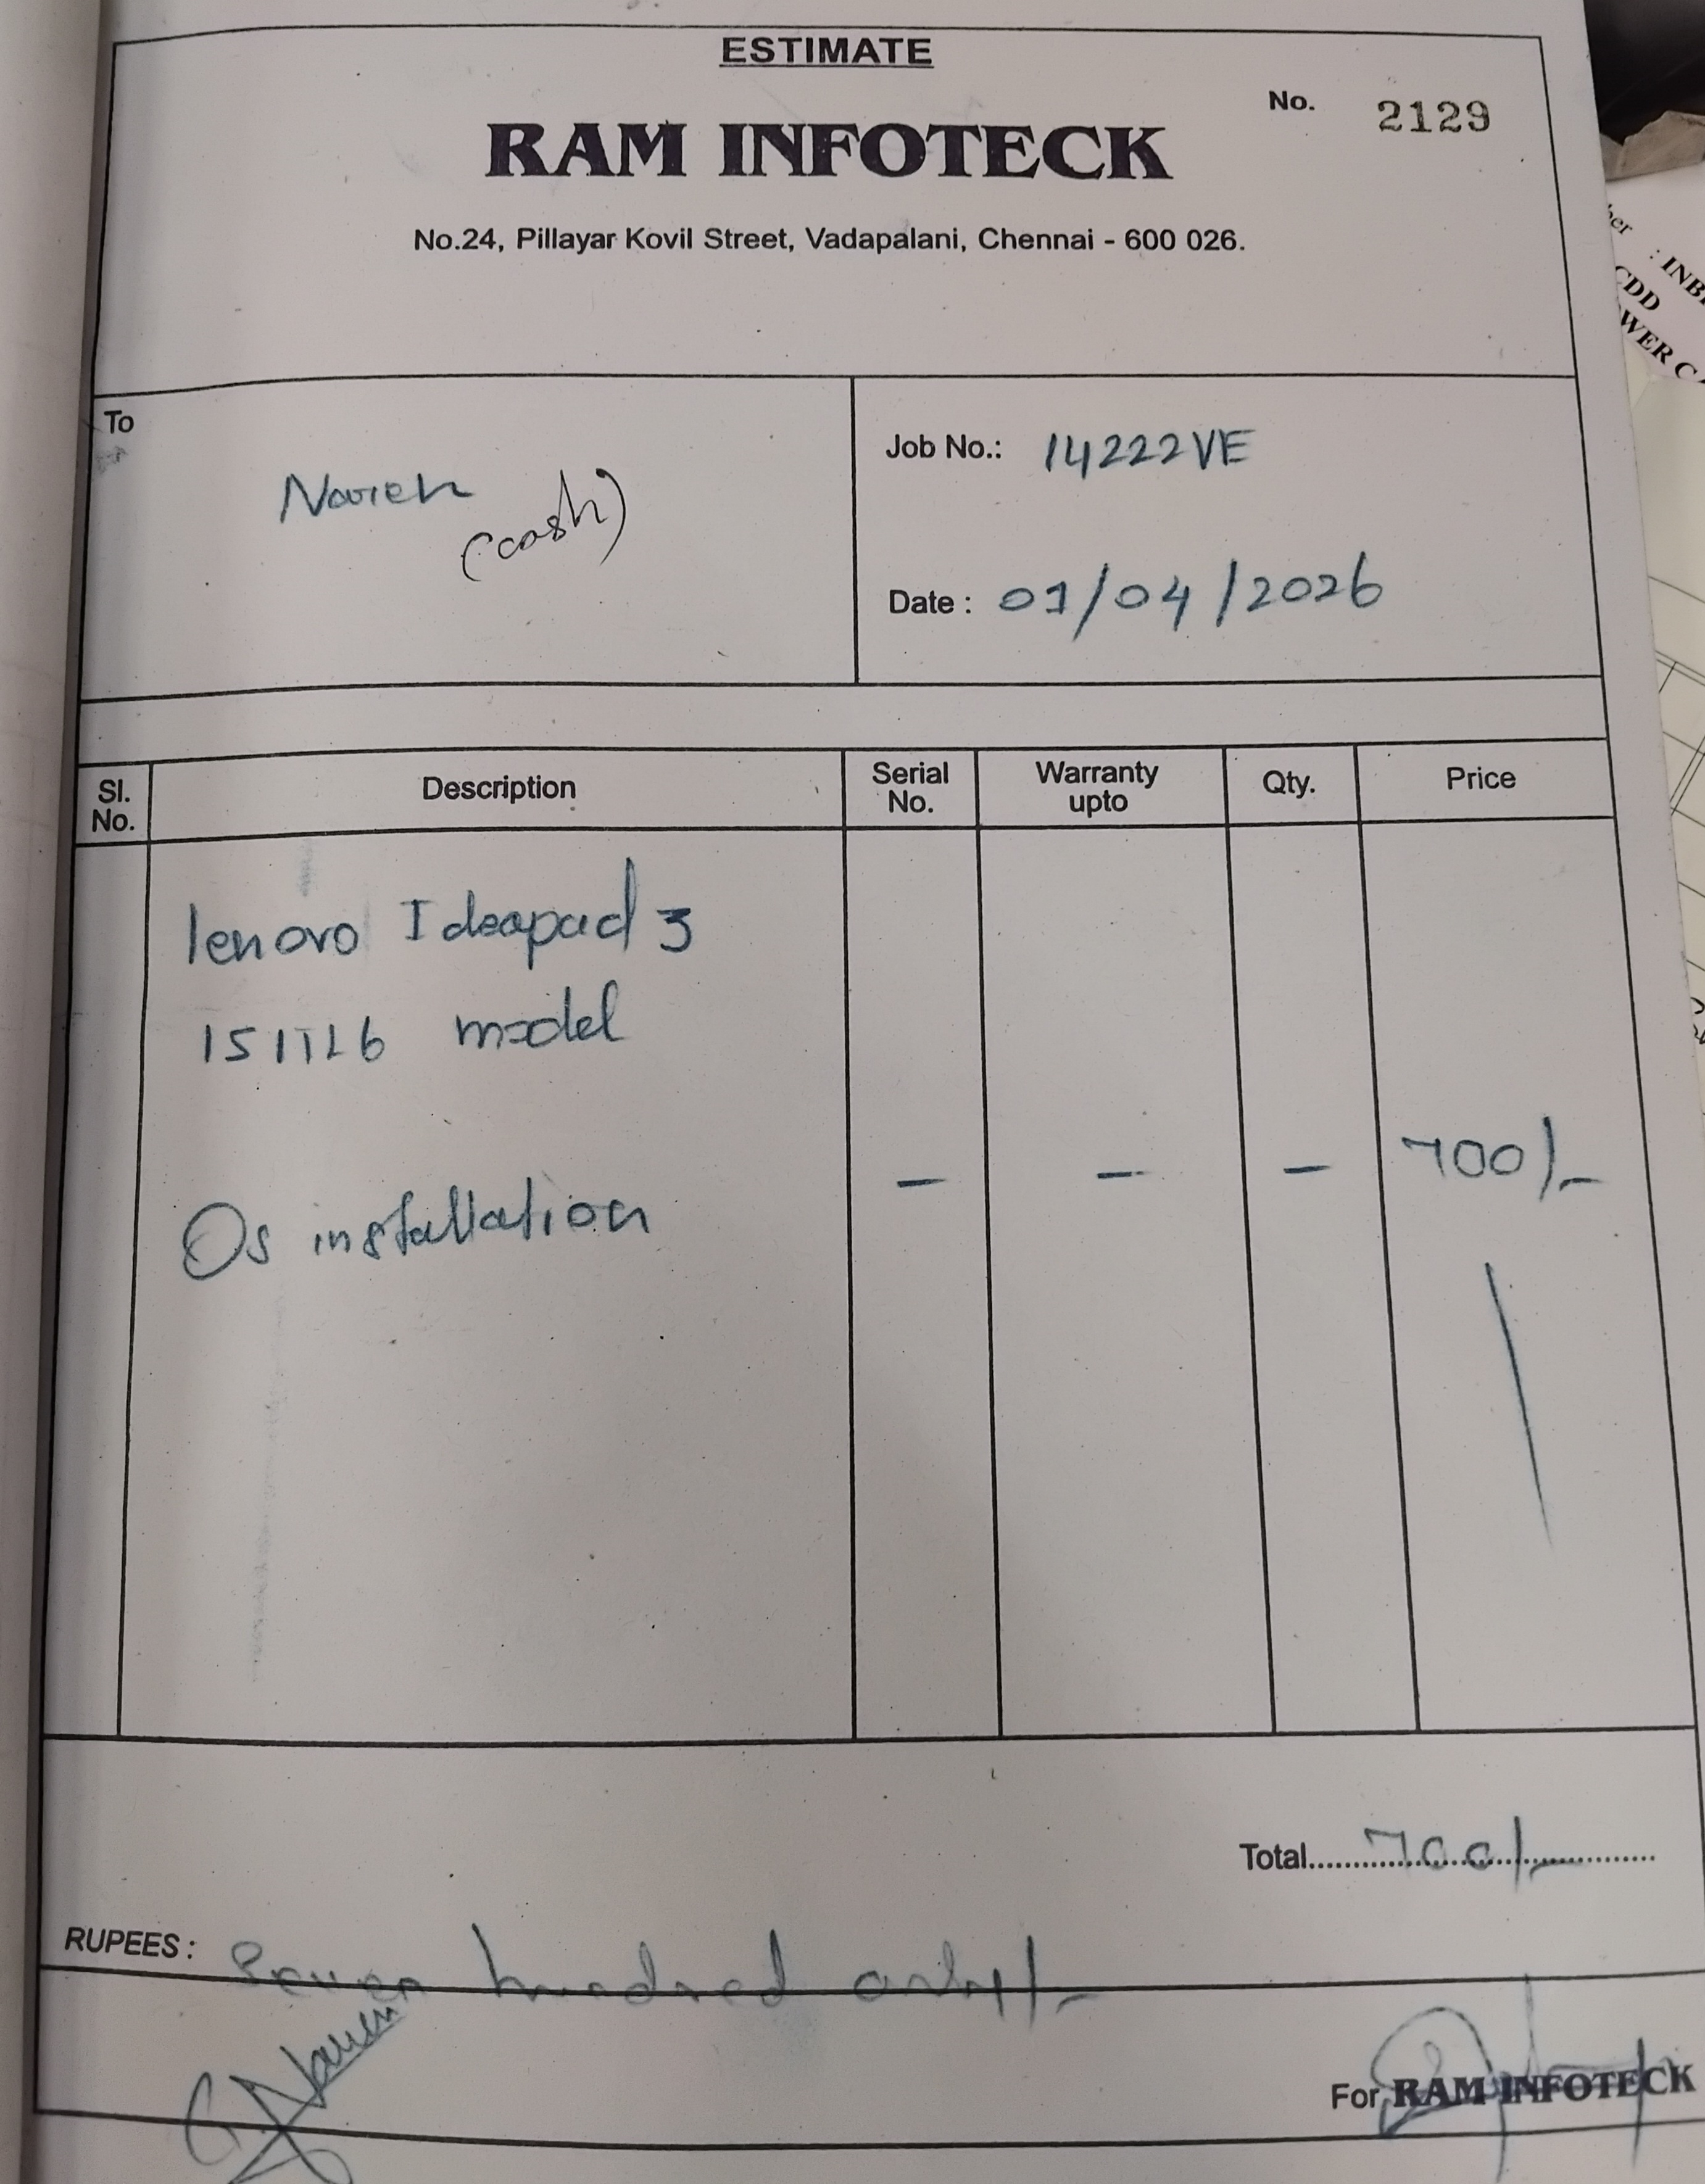 ESTIMATE
No. 2129
RAM INFOTECK
No.24, Pillayar Kovil Street, Vadapalani, Chennai - 600 026.
To
(cash)
Job No.: 14222VE
Date : 01/04/2026
Sl. No. Description Serial No. Warranty upto Qty. Price
lenovo Ideapad 3
15ITL6 model
Os installation - - - 700/-
Total 700/-
RUPEES : Seven hundred only/-
For RAM INFOTECK
: INB
CDD
WER CA